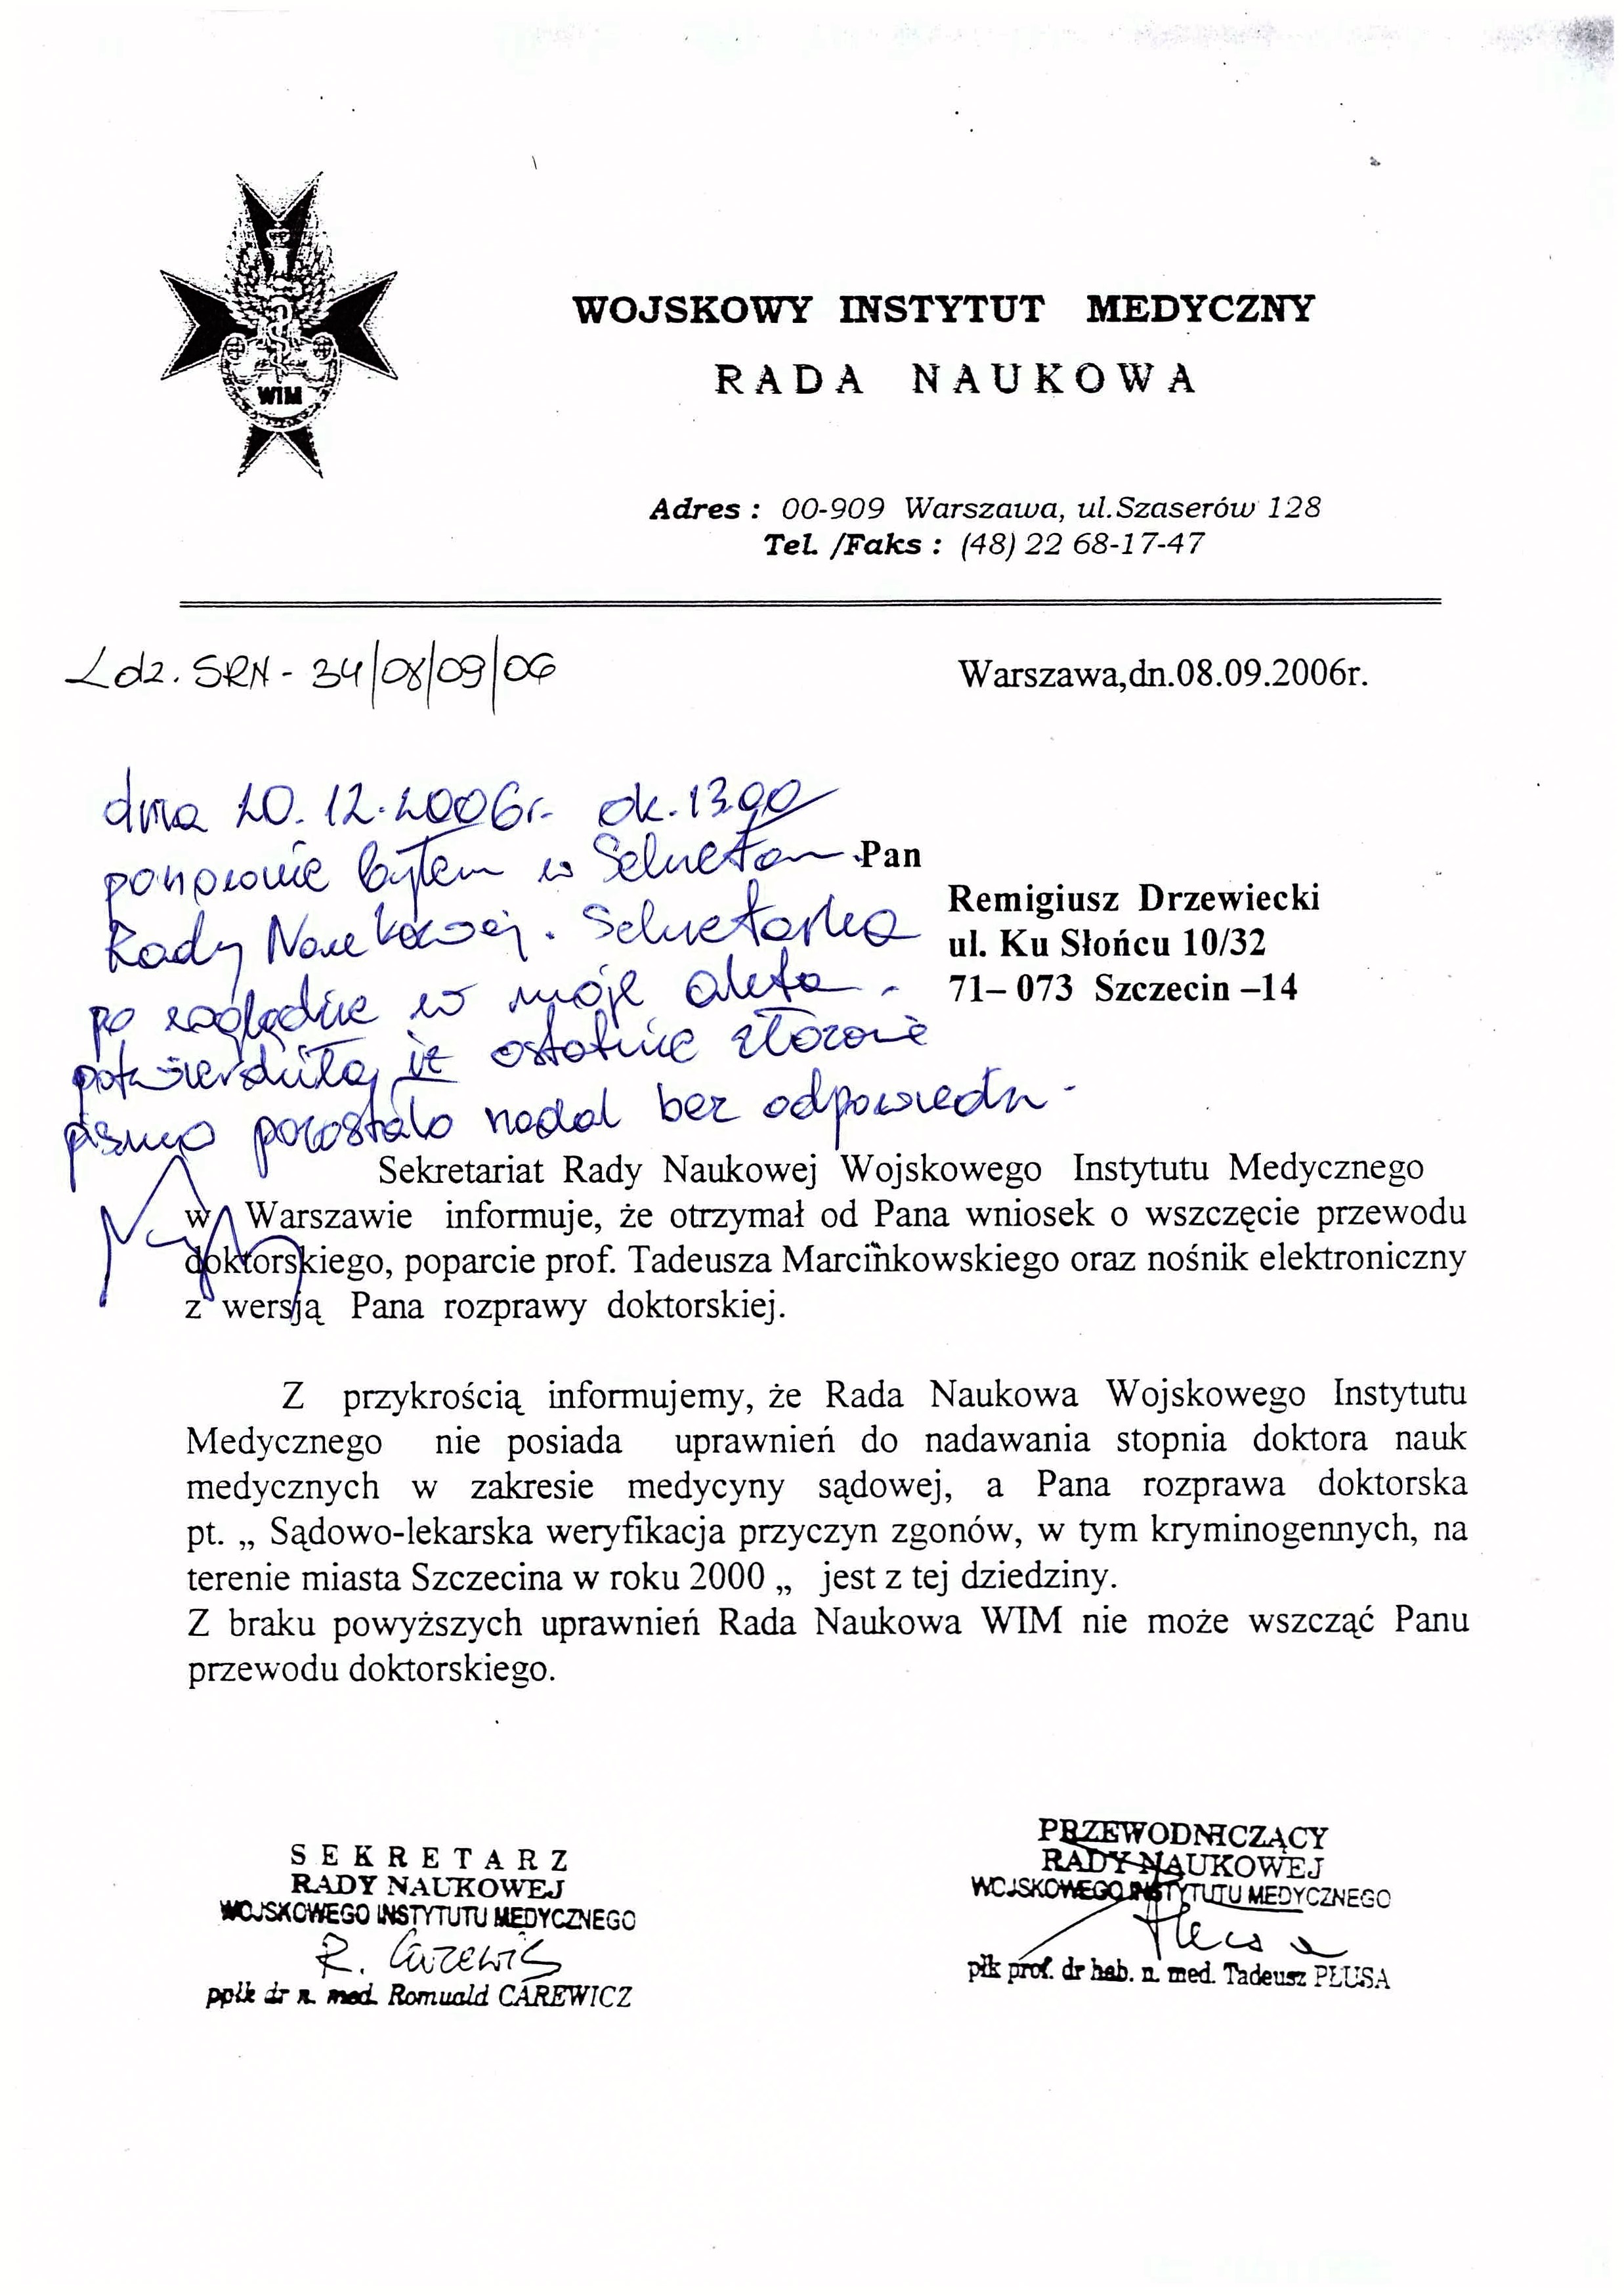 WIM
WOJSKOWY INSTYTUT MEDYCZNY
RADA NAUKOWA
Adres : 00-909 Warszawa, ul.Szaserów 128
Tel. /Faks : (48) 22 68-17-47
Ldz. SRN - 34/08/09/06
Warszawa,dn.08.09.2006r.
dnia 20.12.2006r. ok. 13.00
ponownie byłem w Sekretar.
Rady Naukowej. Sekretarka
po wglądzie w moje akta
potwierdziła, iż ostatnie złożone
pismo pozostało nadal bez odpowiedzi.
Pan
Remigiusz Drzewiecki
ul. Ku Słońcu 10/32
71– 073 Szczecin –14
Sekretariat Rady Naukowej Wojskowego Instytutu Medycznego
w Warszawie informuje, że otrzymał od Pana wniosek o wszczęcie przewodu
doktorskiego, poparcie prof. Tadeusza Marcinkowskiego oraz nośnik elektroniczny
z wersją Pana rozprawy doktorskiej.
Z przykrością informujemy, że Rada Naukowa Wojskowego Instytutu
Medycznego nie posiada uprawnień do nadawania stopnia doktora nauk
medycznych w zakresie medycyny sądowej, a Pana rozprawa doktorska
pt. „ Sądowo-lekarska weryfikacja przyczyn zgonów, w tym kryminogennych, na
terenie miasta Szczecina w roku 2000 „ jest z tej dziedziny.
Z braku powyższych uprawnień Rada Naukowa WIM nie może wszcząć Panu
przewodu doktorskiego.
SEKRETARZ
RADY NAUKOWEJ
WOJSKOWEGO INSTYTUTU MEDYCZNEGO
R. Carewicz
ppłk dr n. med. Romuald CAREWICZ
PRZEWODNICZĄCY
RADY NAUKOWEJ
WOJSKOWEGO INSTYTUTU MEDYCZNEGO
płk prof. dr hab. n. med. Tadeusz PŁUSA